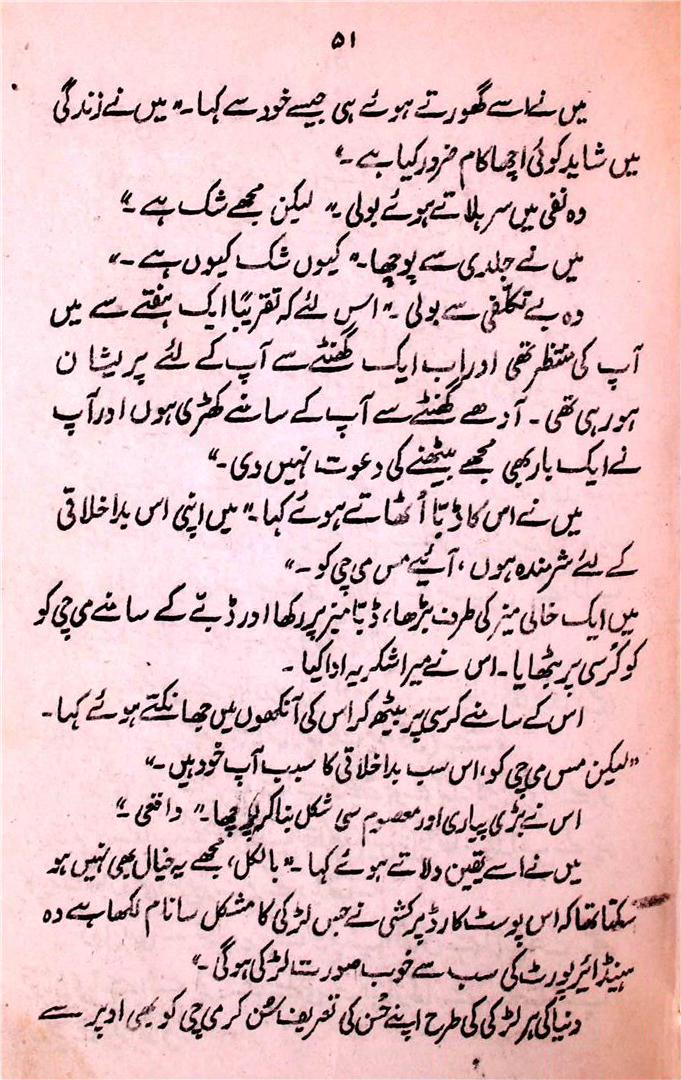 ۵۱
میں نے اسے گھورتے ہوئے ہی جیسے خود سے کہا۔" میں نے زندگی
میں شاید کوئی اچھا کام ضرور کیا ہے۔"
وہ نفی میں سر ہلاتے ہوئے بولی۔" لیکن مجھے شک ہے۔"
میں نے جلدی سے پوچھا۔" کیوں شک کیوں ہے۔"
وہ بے تکلّفی سے بولی۔" اس لئے کہ تقریباً ایک ہفتے سے میں
آپ کی منتظر تھی اور اب ایک گھنٹے سے آپ کے لئے پریشان
ہو رہی تھی۔ آدھے گھنٹے سے آپ کے سامنے کھڑی ہوں اور آپ
نے ایک بار بھی مجھے بیٹھنے کی دعوت نہیں دی۔"
میں نے اس کا ڈبّا اُٹھاتے ہوئے کہا۔" میں اپنی اس بداخلاقی
کے لئے شرمندہ ہوں، آئیے مس می چی کو۔"
میں ایک خالی میز کی طرف بڑھا، ڈبّا میز پر رکھا اور ڈبّے کے سامنے می چی کو
کو کُرسی پر بٹھایا۔ اس نے میرا شکریہ ادا کیا۔
اس کے سامنے کرسی پر بیٹھ کر اس کی آنکھوں میں جھانکتے ہوئے کہا۔
"لیکن مس می چی کو، اس سب بداخلاقی کا سبب آپ خود ہیں۔"
اس نے بڑی پیاری اور معصوم سی شکل بنا کر پوچھا۔" واقعی۔"
میں نے اسے یقین دلاتے ہوئے کہا۔" بالکل، مجھے یہ خیال بھی نہیں ہو
سکتا تھا کہ اس پوسٹ کارڈ پر کشی نے جس لڑکی کا مشکل سا نام لکھا ہے وہ
ہینڈا ئیرپورٹ کی سب سے خوب صورت لڑکی ہوگی۔"
دنیا کی ہر لڑکی کی طرح اپنے حُسن کی تعریف سُن کر می چی کو بھی اوپر سے